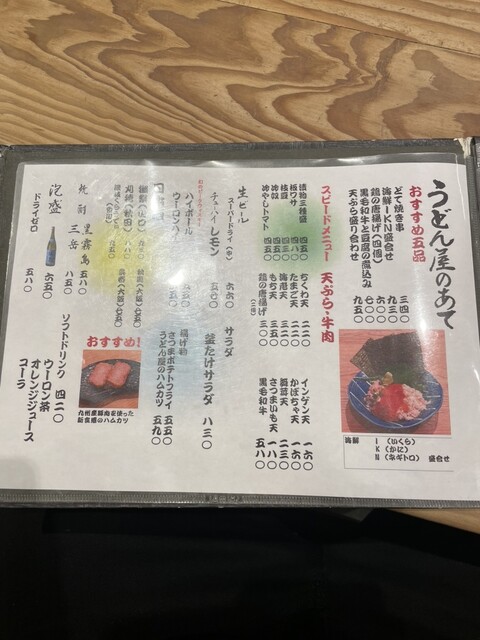 うどん屋のあて
おすすめ五品
どて焼き串 三四〇
海鮮IKN盛合せ 九三〇
鶏の唐揚げ(四個) 六〇〇
黒毛和牛と豆腐の煮込み 七〇〇
天ぷら盛り合わせ 九五〇
海鮮 I(いくら)
K(かに)
N(ネギトロ) 盛合せ
スピードメニュー
漬物三種盛 四五〇
板ワサ
枝豆 三五〇
冷奴
冷やしトマト 四五〇
天ぷら・牛肉
ちくわ天 二二〇
たまご天
海老天
もち天
鶏の唐揚げ(二個) 三五〇
インゲン天 一六〇
かぼちゃ天 一六〇
舞茸天 二三〇
さつまいも天
黒毛和牛 五八〇
生ビール
スーパードライ(中) 六六〇
チューハイ レモン 五五〇
ハイボール
ウーロンハイ 五五〇
サラダ
釜たけサラダ 八三〇
揚げ物
さつまポテトフライ 五五〇
うどん屋のハムカツ 五九〇
おすすめ!
九州産豚肉を使った
新食感のハムカツ
焼酎 黒霧島 五八〇
三岳 八五〇
泡盛 六五〇
ドライゼロ 五八〇
ソフトドリンク 四二〇
ウーロン茶
オレンジジュース
コーラ